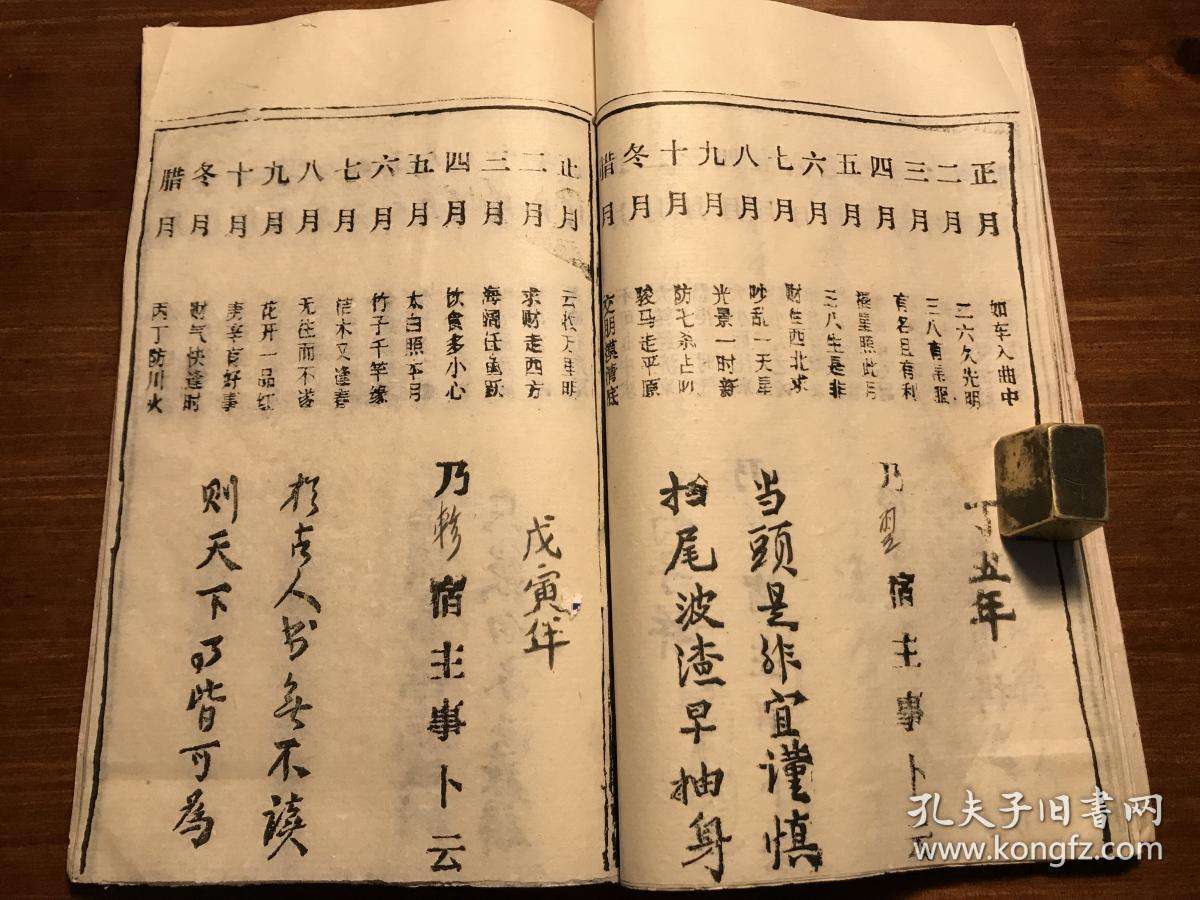 正月 如车入曲中
二月 二六久先明
三月 三八有
四月 有名且有利
五月 照此月
六月 三八生是非
七月 财在西北求
八月 吵乱一天星
九月 光景一时新
十月 防七杀占
冬月 骏马走平原
腊月
丁丑年
乃 宿主事卜云
当頭是非宜谨慎
尾波渣早抽身
正月
二月 求财走西方
三月 海阔任鱼跃
四月 饮食多小心
五月 太白照本月
六月 竹子千竿缘
七月 枯木又逢春
八月 无往而不遂
九月 花开一品红
十月 庚辛有好事
冬月 财气快逢时
腊月 丙丁防川火
戊寅年
乃軫宿主事卜云
於古人书無不读
则天下乃皆可為
孔夫子旧書网
www.kongfz.com